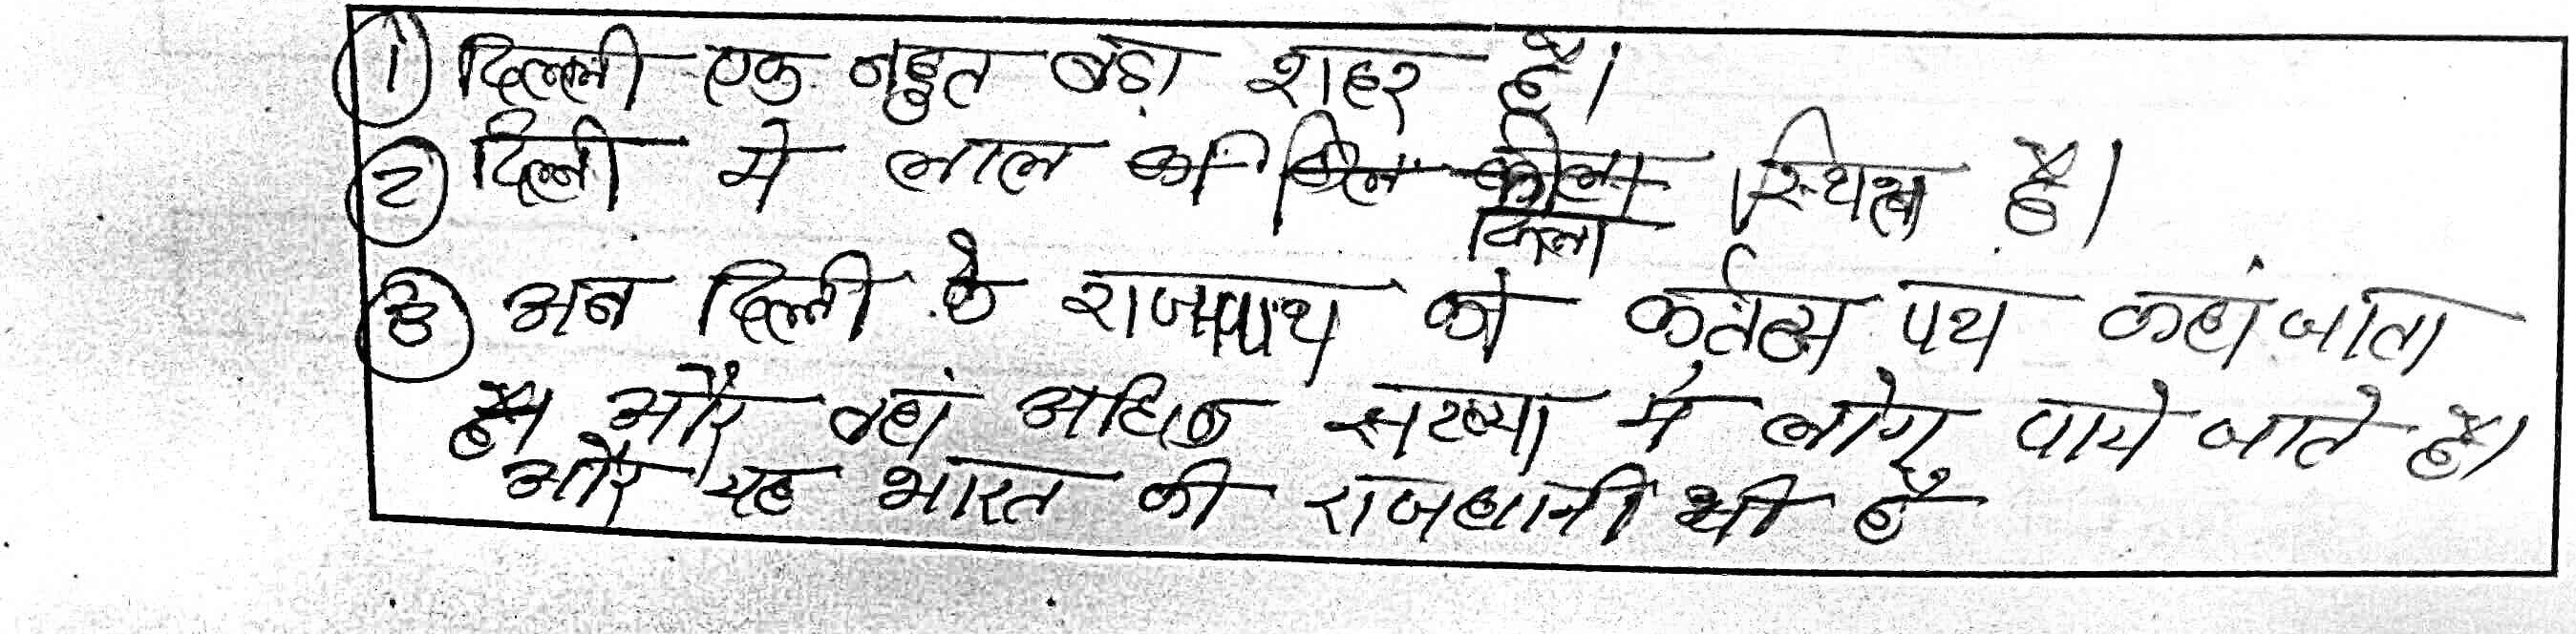 ① दिल्ली एक बहुत बडा शहर है।
② दिल्ली मे लाल किला स्थित है।
③ अब दिल्ली के राजपाथ को कर्तव्य पथ कहां जाता
है। और वहां अधिक सख्या मे लोग पाये जाते है।
और यह भारत की राजधानी भी है